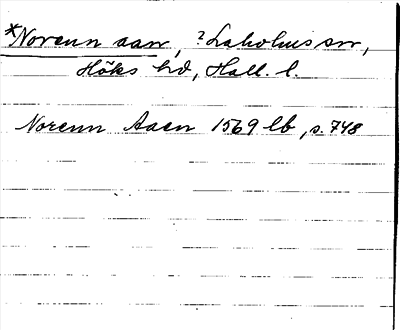 *Norenn aan, ? Laholms sn,
Höks hd, Hall. l.
Norenn Aaen 1569 lb, s. 748